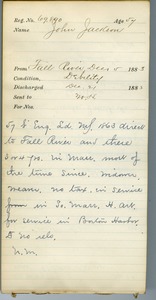 Reg. No. 69,890 Age 57
Name, John Jackson
From Fall River Dec. 5 1883
Condition, Debility
Discharged Dec 21 1883
Sent to Work
For Nos.
57 S. Eng. Ld. N.Y. 1863 direct
to Fall River and there
3 or 4 yrs. in Mass. most of
the time since. Widower
means, no tax, in service
from in So. Mass. H. Art.
for service in Boston Harbor
& no relo.
N.M.